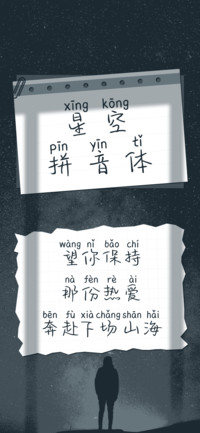 xīng kōng
星空
pīn yīn tǐ
拼音体
wàng nǐ bǎo chí
望你保持
nà fèn rè ài
那份热爱
bēn fù xià chǎng shān hǎi
奔赴下场山海